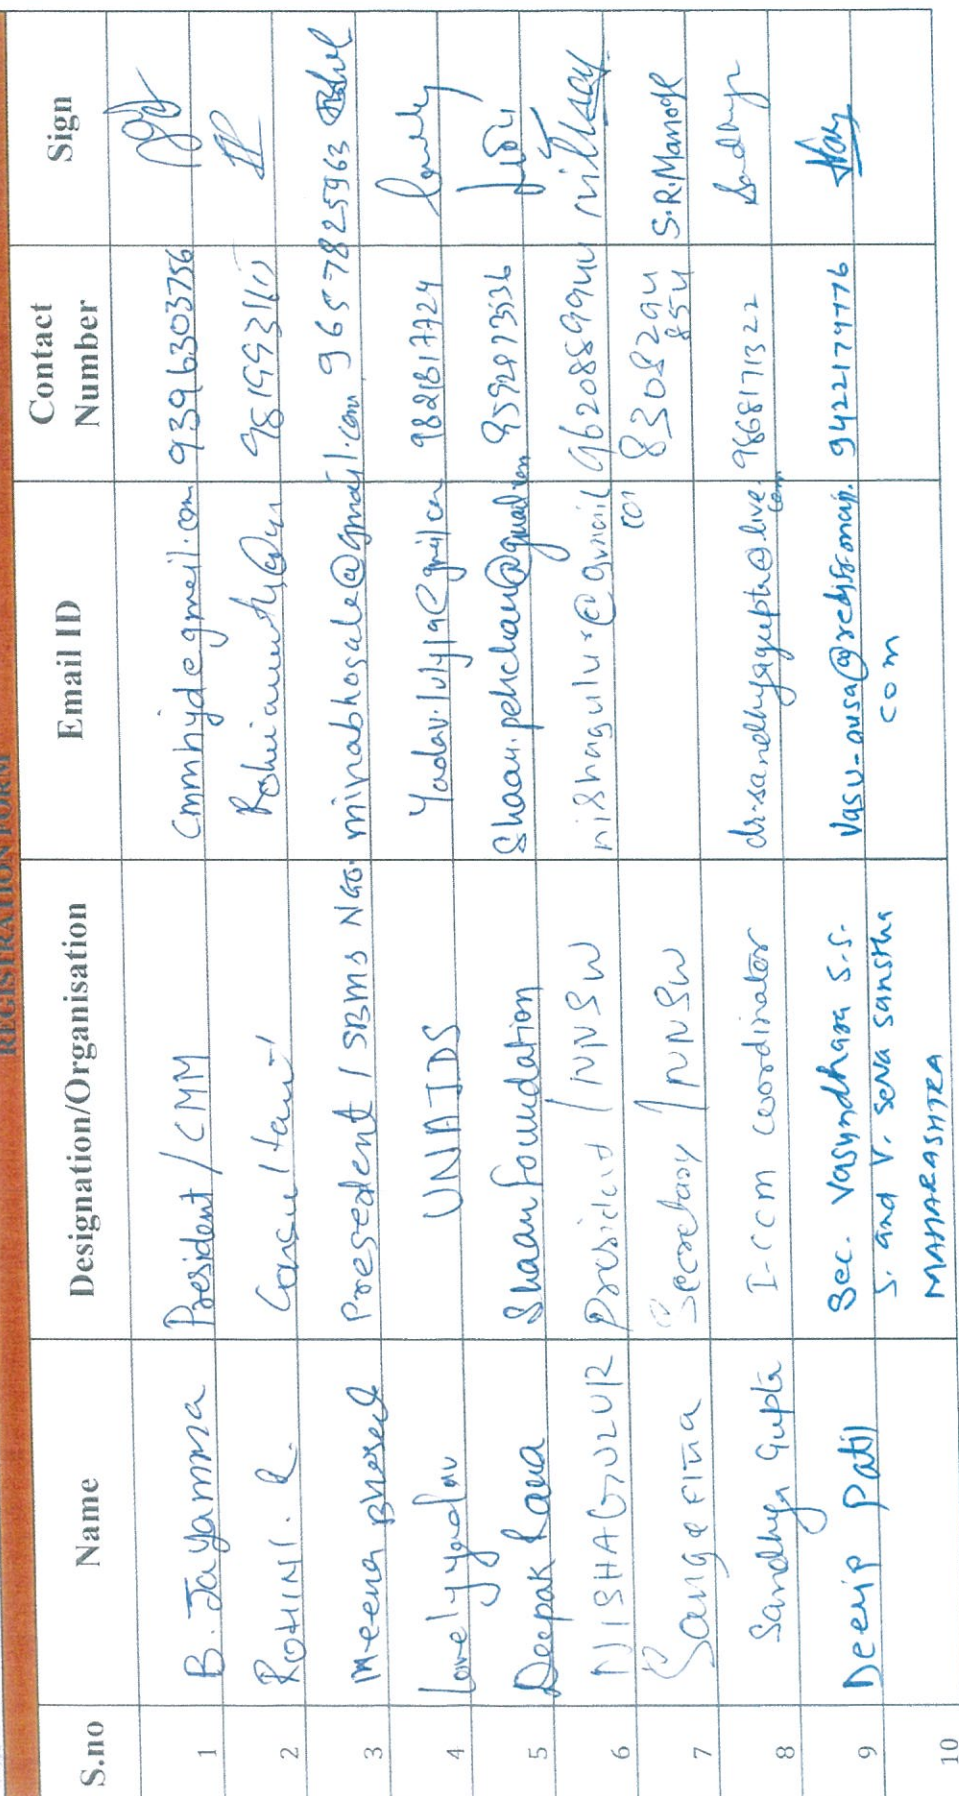 REGISTRATION FORM
S.no Name Designation/Organisation Email ID Contact Number Sign
1 B. Jayamma President / CMM cmmhyd@gmail.com 9396303756
2 ROHINI. R Consultant
3 Meena President / SBMS NGO. minabhosale@gmail.com 9657825963
4 Lovely yadav UNAIDS 9821817724 Lovely
5 Deepak Rana Shaan foundation Shaan.pehchan@gmail.com
6 NISHA GULUR President / NNSW nishagulur@gmail.com 9620889944
7 Sangeetha Secretary / NNSW 8308294854 S.R.Manage
8 Sandhya Gupta I-CCM coordinator dr.sandhyagupta@live.com 9668171322 Sandhya
9 Deelip Patil Sec. Vasundhara S.S. S. and V. seva sanstha MAHARASHTRA vasu-ausa@rediffmail.com 9422174776
10